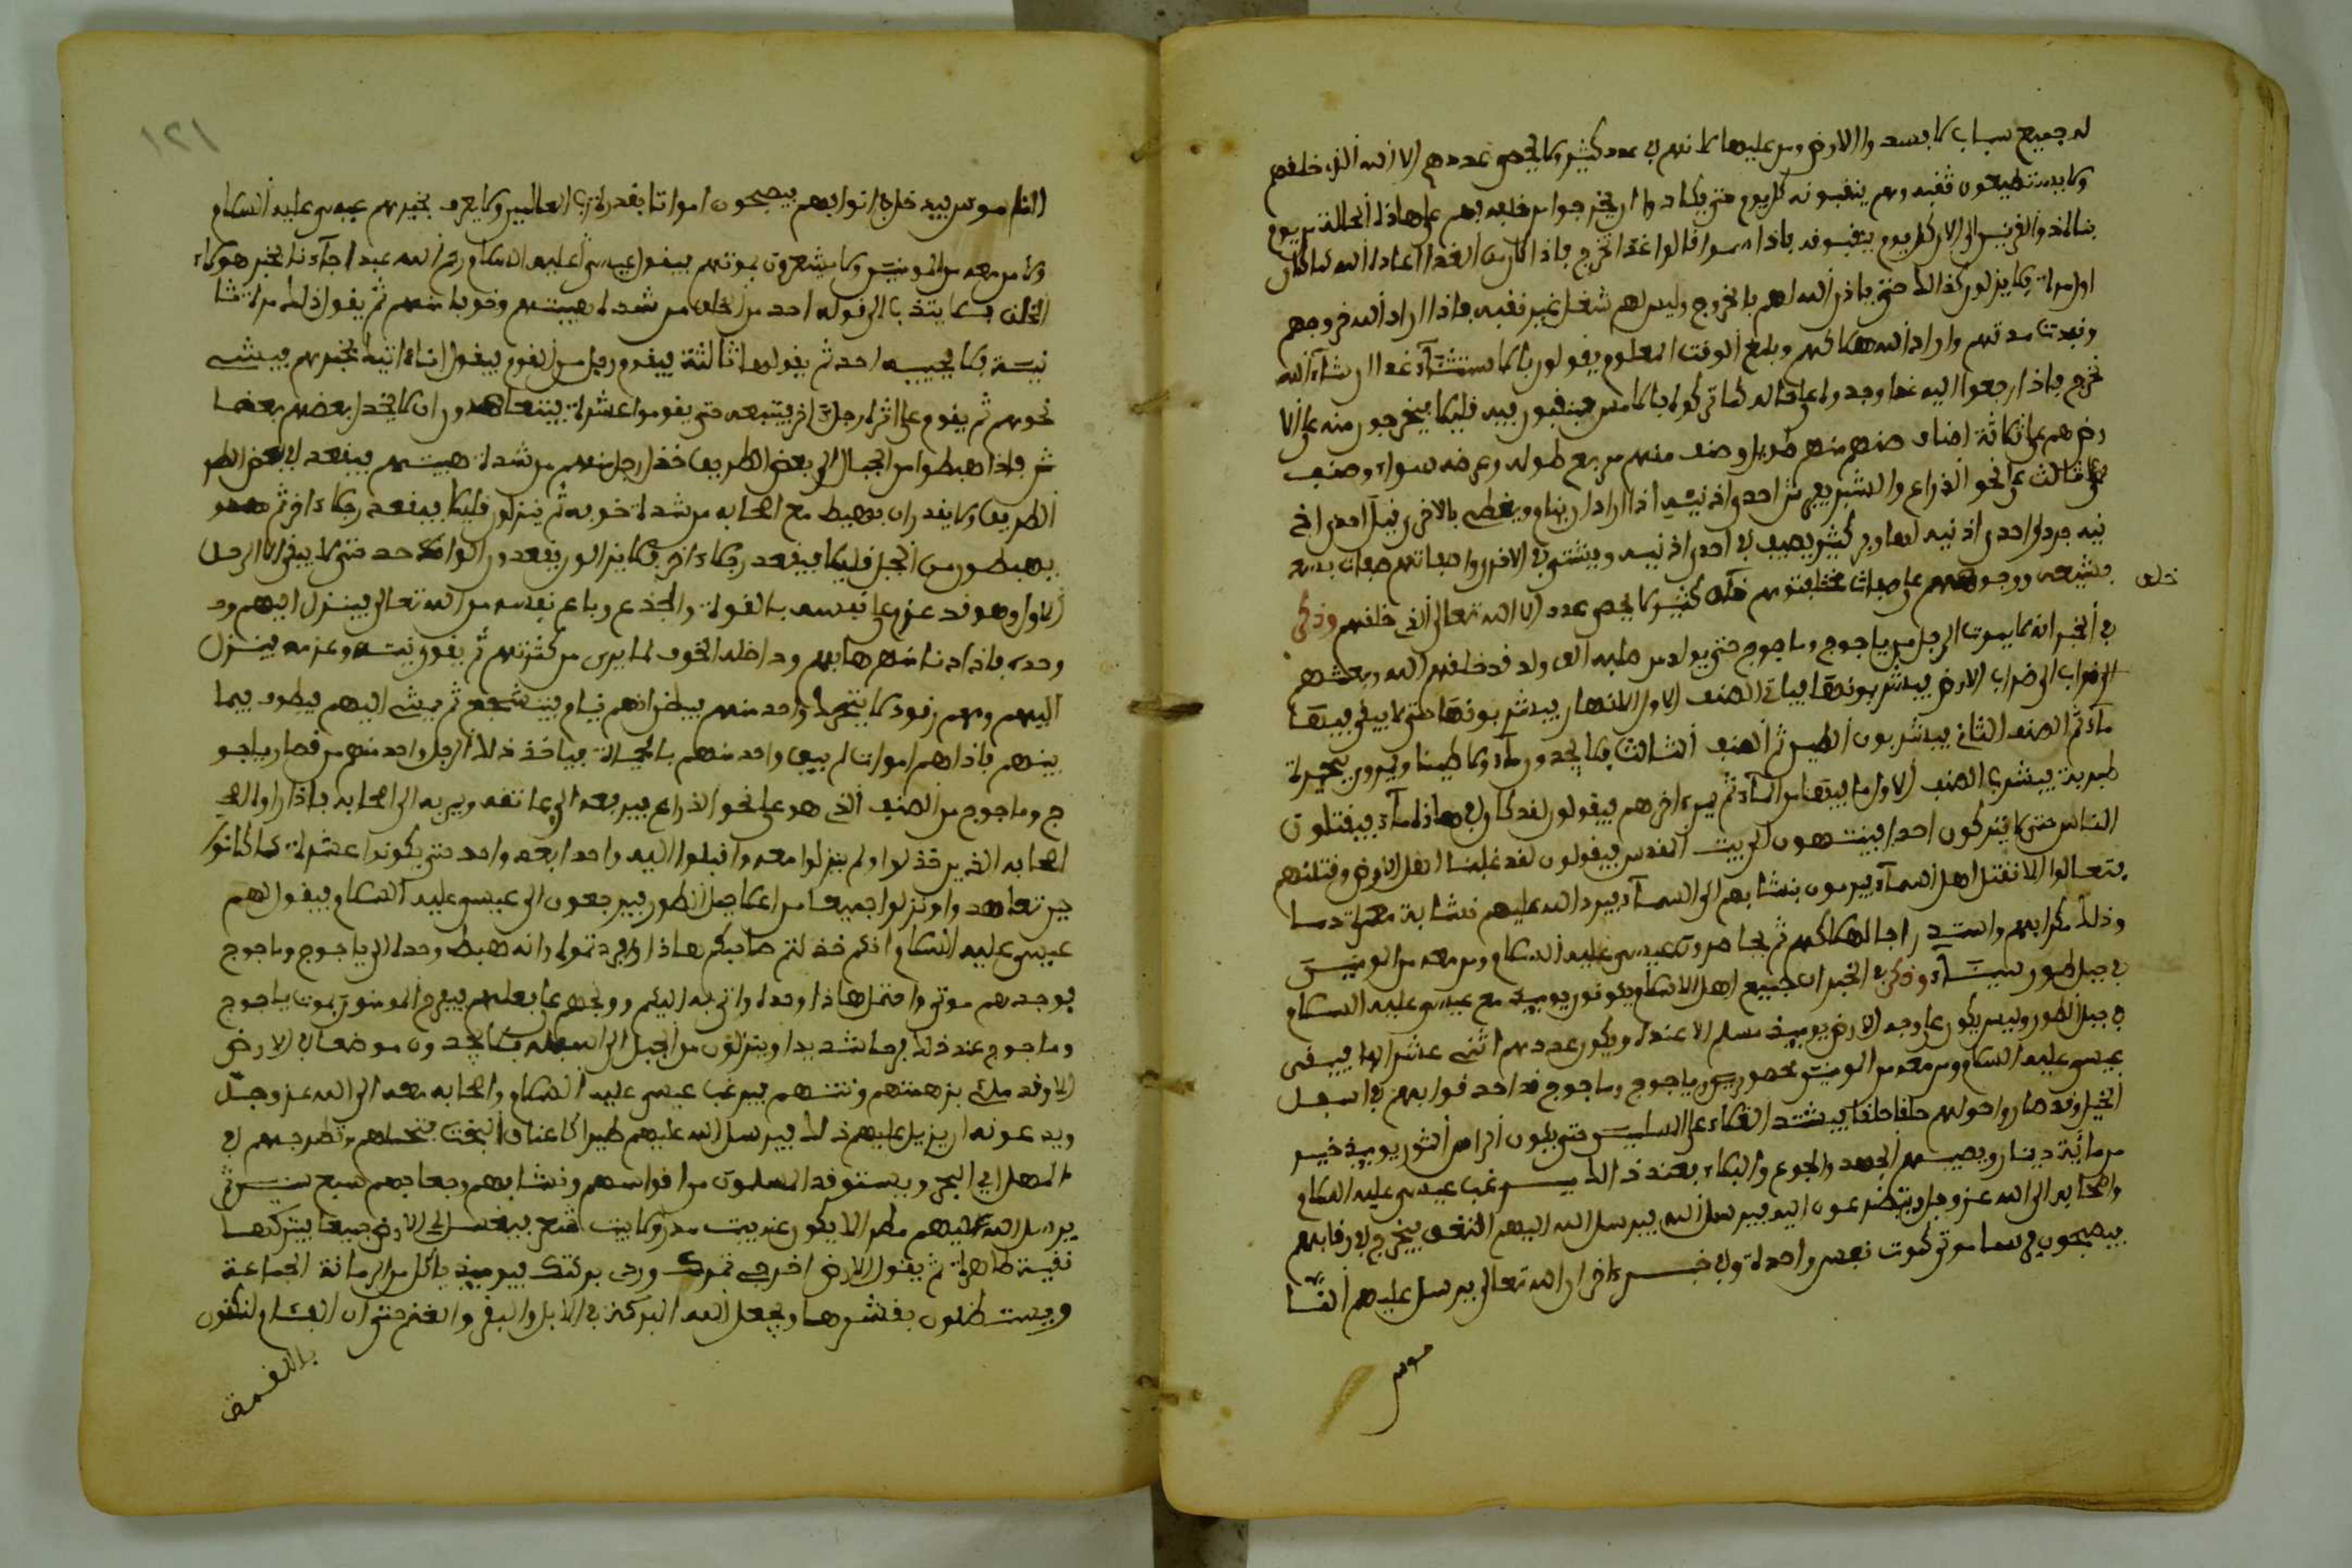 له جميع سباب كما بسد والارض ومن عليها لانهم في عدد كثير ولا يحصي عددهم الا الله الذي خلقهم
ولا يستطيعون ثقبه وهم ينقبونه كل يوم حتى يكادوا ان يخرجوا من خلفه بهم على هذه الحالة من يوم
الى الان كل يوم ينقبونه فاذا امسوا قالوا غدا نخرج فاذا كان من الغد اعاده الله كما كان
اول مرة فلا يزلون كذلك حتى ياذن الله لهم بالخروج وليس لهم شغل غير نقبه فاذا اراد الله خروجهم
ونفدت مدتهم واراد الله هلاكهم وبلغ الوقت المعلوم يقولون غدا ان شاء الله
نخرج فاذا رجعوا اليه غدا وجدوه على حاله كما تركوه بالامس فينقبون فيه قليلا فيخرجون منه على الا
رض هم على ثلاثة اصناف صنف منهم طويل وصنف منهم مربع طوله وعرضه سواء وصنف
ثالث على نحو الذراع والشبر يفترش احدى اذنيه اذا اراد ان ينام ويغطى بالاخرى فيل احدى اذ
نيه جرد واحدى اذنيه لها وبر كثير يصيف في احدى اذنيه ويشتي في الاخرى وصفاتهم صفات بشعة
بشعة ووجوههم على صفات مختلفة وهم خلق كثير لا يحصى عدده الا الله تعالى الذي خلقهم وذكر
خلق
في الخبر انه لا يموت الرجل من ياجوج وماجوج حتى يولد من صلبه الف ولد قد خلقهم الله وبعثهم
الى خراب الارض فيشربونها فياتي الصنف الاول الانهار فيشربونها حتى لا يبقى فيها
ماء ثم الصنف الثاني فيشربون الطين ثم الصنف الثالث فلا يجدون ماء ولا طينا ويمرون ببحيرة
طبرية فيشرب الصنف الاول ما فيها من الماء ثم يمر اخرهم فيقولون لقد كان في هذه ماء فيقتلون
الناس حتى لا يتركون احدا فينتهون الى بيت المقدس فيقولون لقد غلبنا اهل الارض وقتلناهم
فتعالوا الا نقتل اهل السماء فيرمون بنشابهم الى السماء فيرد الله عليهم نشابة مملوة دما
وذلك مكرا بهم واستدراجا لهلاكهم ثم يحاصرون عيسى عليه السلام ومن معه من المومنين
في جبل طور سيناء وذكر في الخبر ان جميع اهل الاسلام يكونون يوميذ مع عيسى عليه السلام
في جبل الطور وليس يكون على وجه الارض يوميذ مسلم الا عنده ويكون عددهم اثنى عشر الفا فيبقى
عيسى عليه السلام ومن معه من المومنين محصورين وياجوج وماجوج قد احدقوا بهم في اسفل
الجبل وقد صاروا حولهم حلقا حلقا فيشتد الغلاء على المسلمين حتى يكون الراس الثور يوميذ خير
من مائة دينار ويصيبهم الجهد والجوع والبكاء فعند ذلك يرغب عيسى عليه السلام
واصحابه الى الله عز وجل ويتضرعون اليه فيرسل الله اليهم النغف يخرج في رقابهم
فيصبحون كلهم موتى كموت نفس واحدة وفي خبر اخر ان الله تعالى يرسل عليهم
موس
١٢١
الناموس فيدخل اذانهم فيصبحون امواتا بقدرة رب العالمين ولا يعرف بخبرهم عيسى عليه السلام
ولا من معه من المومنين ولا يشعرون بموتهم فيقول عيسى عليه السلام رحم الله عبدا جاءنا بخبر هولاء
الخلق فلا ينتدب الى قوله احد من الخلق من شدة هيبتهم وخوفا منهم ثم يقول ذلك مرة ثا
نية فلا يجيبه احد ثم يقولها ثالثة فيقوم رجل من القوم فيقول انا اتيك بخبرهم فيمشي
نحوهم ثم يقوم على اثره رجل اخر يتبعه حتى يقوموا عشرة فيتعاهدون ان لا يخذل بعضهم بعضا
ثم فاذا هبطوا من الجبل الى بعض الطريق خذل رجل منهم من شدة هيبتهم فيقعد في بعض الطر
الطريق ولا يقدر ان يهبط مع اصحابه من شدة خوفه ثم ينزلون قليلا فيقعد رجلا اخر ثم
يهبطون من الجبل قليلا فيقعد رجلا اخر فلا يزالون يقعدون واحد حتى لا يبقى الا الرجل
الاول وهو قد عزم على نفسه بالقوة والجذع وباع نفسه من الله تعالى فينزل اليهم وحده
وحده فاذا دنا منهم هابهم وداخله الخوف لما يرى من كثرتهم ثم يقوى نيته وعزمه فينزل
اليهم وهم رقود لا يتحرك واحد منهم فيظن انهم نيام فيتشجع ثم يمشي اليهم فيطوف فيما
بينهم فاذاهم اموات لم يبق واحد منهم بالحياة فياخذ ذلك الرجل واحد منهم من قصار ياجو
ج وماجوج من الصنف الذي هو على نحو الذراع فيرفعه الى على عاتقه ويمر به الى اصحابه فاذا راوه
اصحابه الذين خذلوا ولم ينزلوا معه واقبلوا اليه واحدا بعد واحد حتى يكونوا عشرة كما كانوا
حين تعاهدوا ونزلوا جميعا من اعلا جبل الطور فيرجعون الى عيسى عليه السلام فيقول لهم
عيسى عليه السلام انكم خذلتم صاحبكم هذا وافردتموه وانه هبط وحده الى ياجوج وماجوج
فوجدهم موتى واحتمل هذا وحده واتى به اليكم على فعلهم فيفرح المومنون بموت ياجوج
وماجوج عند ذلك فرحا شديدا وينزلون من الجبل الى اسفله فلا يجدون موضعا في الارض
الا وقد ملئ بزهمتهم ونتنهم فيرغب عيسى عليه السلام واصحابه معه الى الله عز وجل
ويدعونه ان يزيل عليهم ذلك فيرسل الله عليهم طيرا كاعناق البخت فتحملهم وتطرحهم في
المهبل الى البحر ويستوقد المسلمون من اقواسهم ونشابهم وجعابهم سبع سنين ثم
يرسل الله عليهم مطرا لا يكون عنه بيت مدر ولا بيت فيغسل الى الارض جميعا فيتركها
نقية طاهرة ثم يقول للارض اخرجي ثمرك وردي بركتك فيوميذ ياكل من الرمانة الجماعة
ويستظلون بقشرها ويجعل الله البركة في الابل والبقر والغنم حتى ان الغنم لتكون
باللقمة